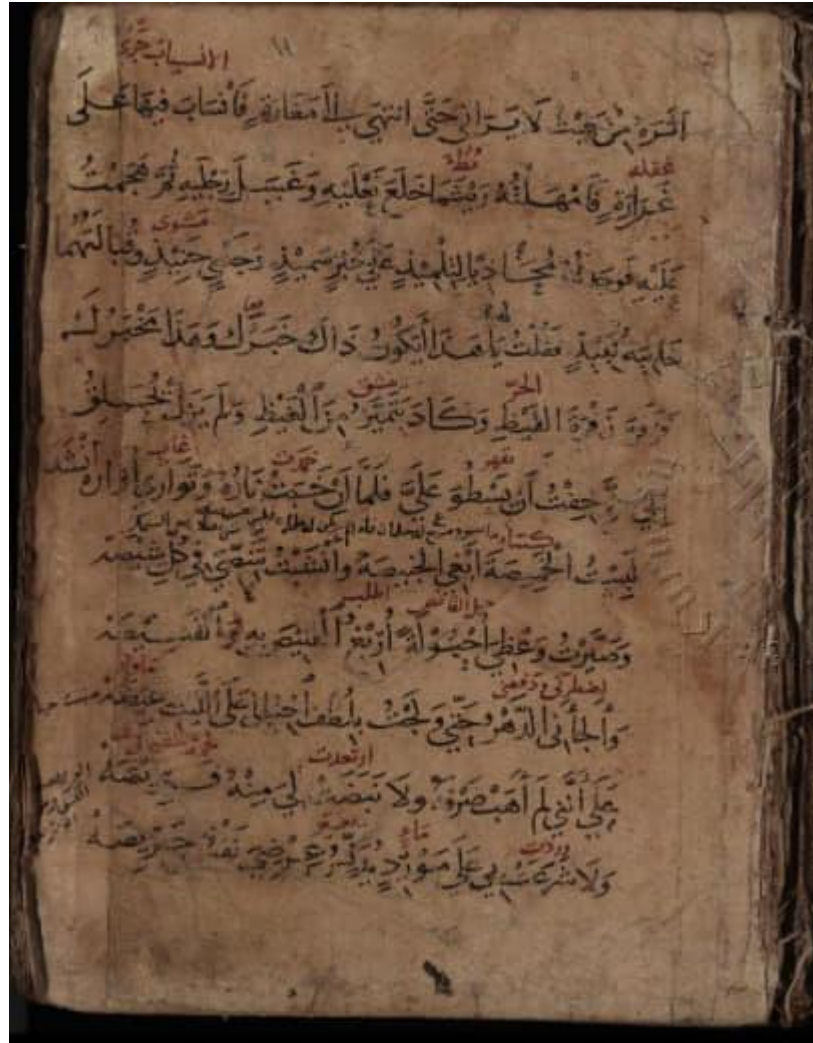 الانسياب جرى
١١
اثره من حيث لا يراني حتى انتهى الى مغارة فانساب فيها على
غفله
غرارة فامهلته ريثما خلع نعليه وغسل رجليه ثم هجمت
مشوى
عليه فوجدته محاذيا لتلميذ على خبز سميذ وجدي حنيذ وقبالتهما
خابية نبيذ فقلت يا هذا ايكون ذاك خبرك وهذا مخبرك
الحر ينشق
فزفر زفرة القيظ وكاد يتميز من الغيظ ولم يزل يحملق
يقهر خمدت غاب
الي حتى خفت ان يسطو علي فلما ان خبت ناره وتوارى اواره انشد
لبست الخميصة ابغي الخبيصه وانشبت شصي في كل شيصه
اطلب
وصيرت وعظي احبولة اريغ القنيص به والقنيصه
والجأني الدهر حتى ولجت بلطف احتيالي على الليث عيصه
ارتعدت
على أنني لم أهب صرفه ولا نبضت لي منه فريصه
وردت ماء
ولا شرعت بي على مورد يدنس عرضي نفس حريصه